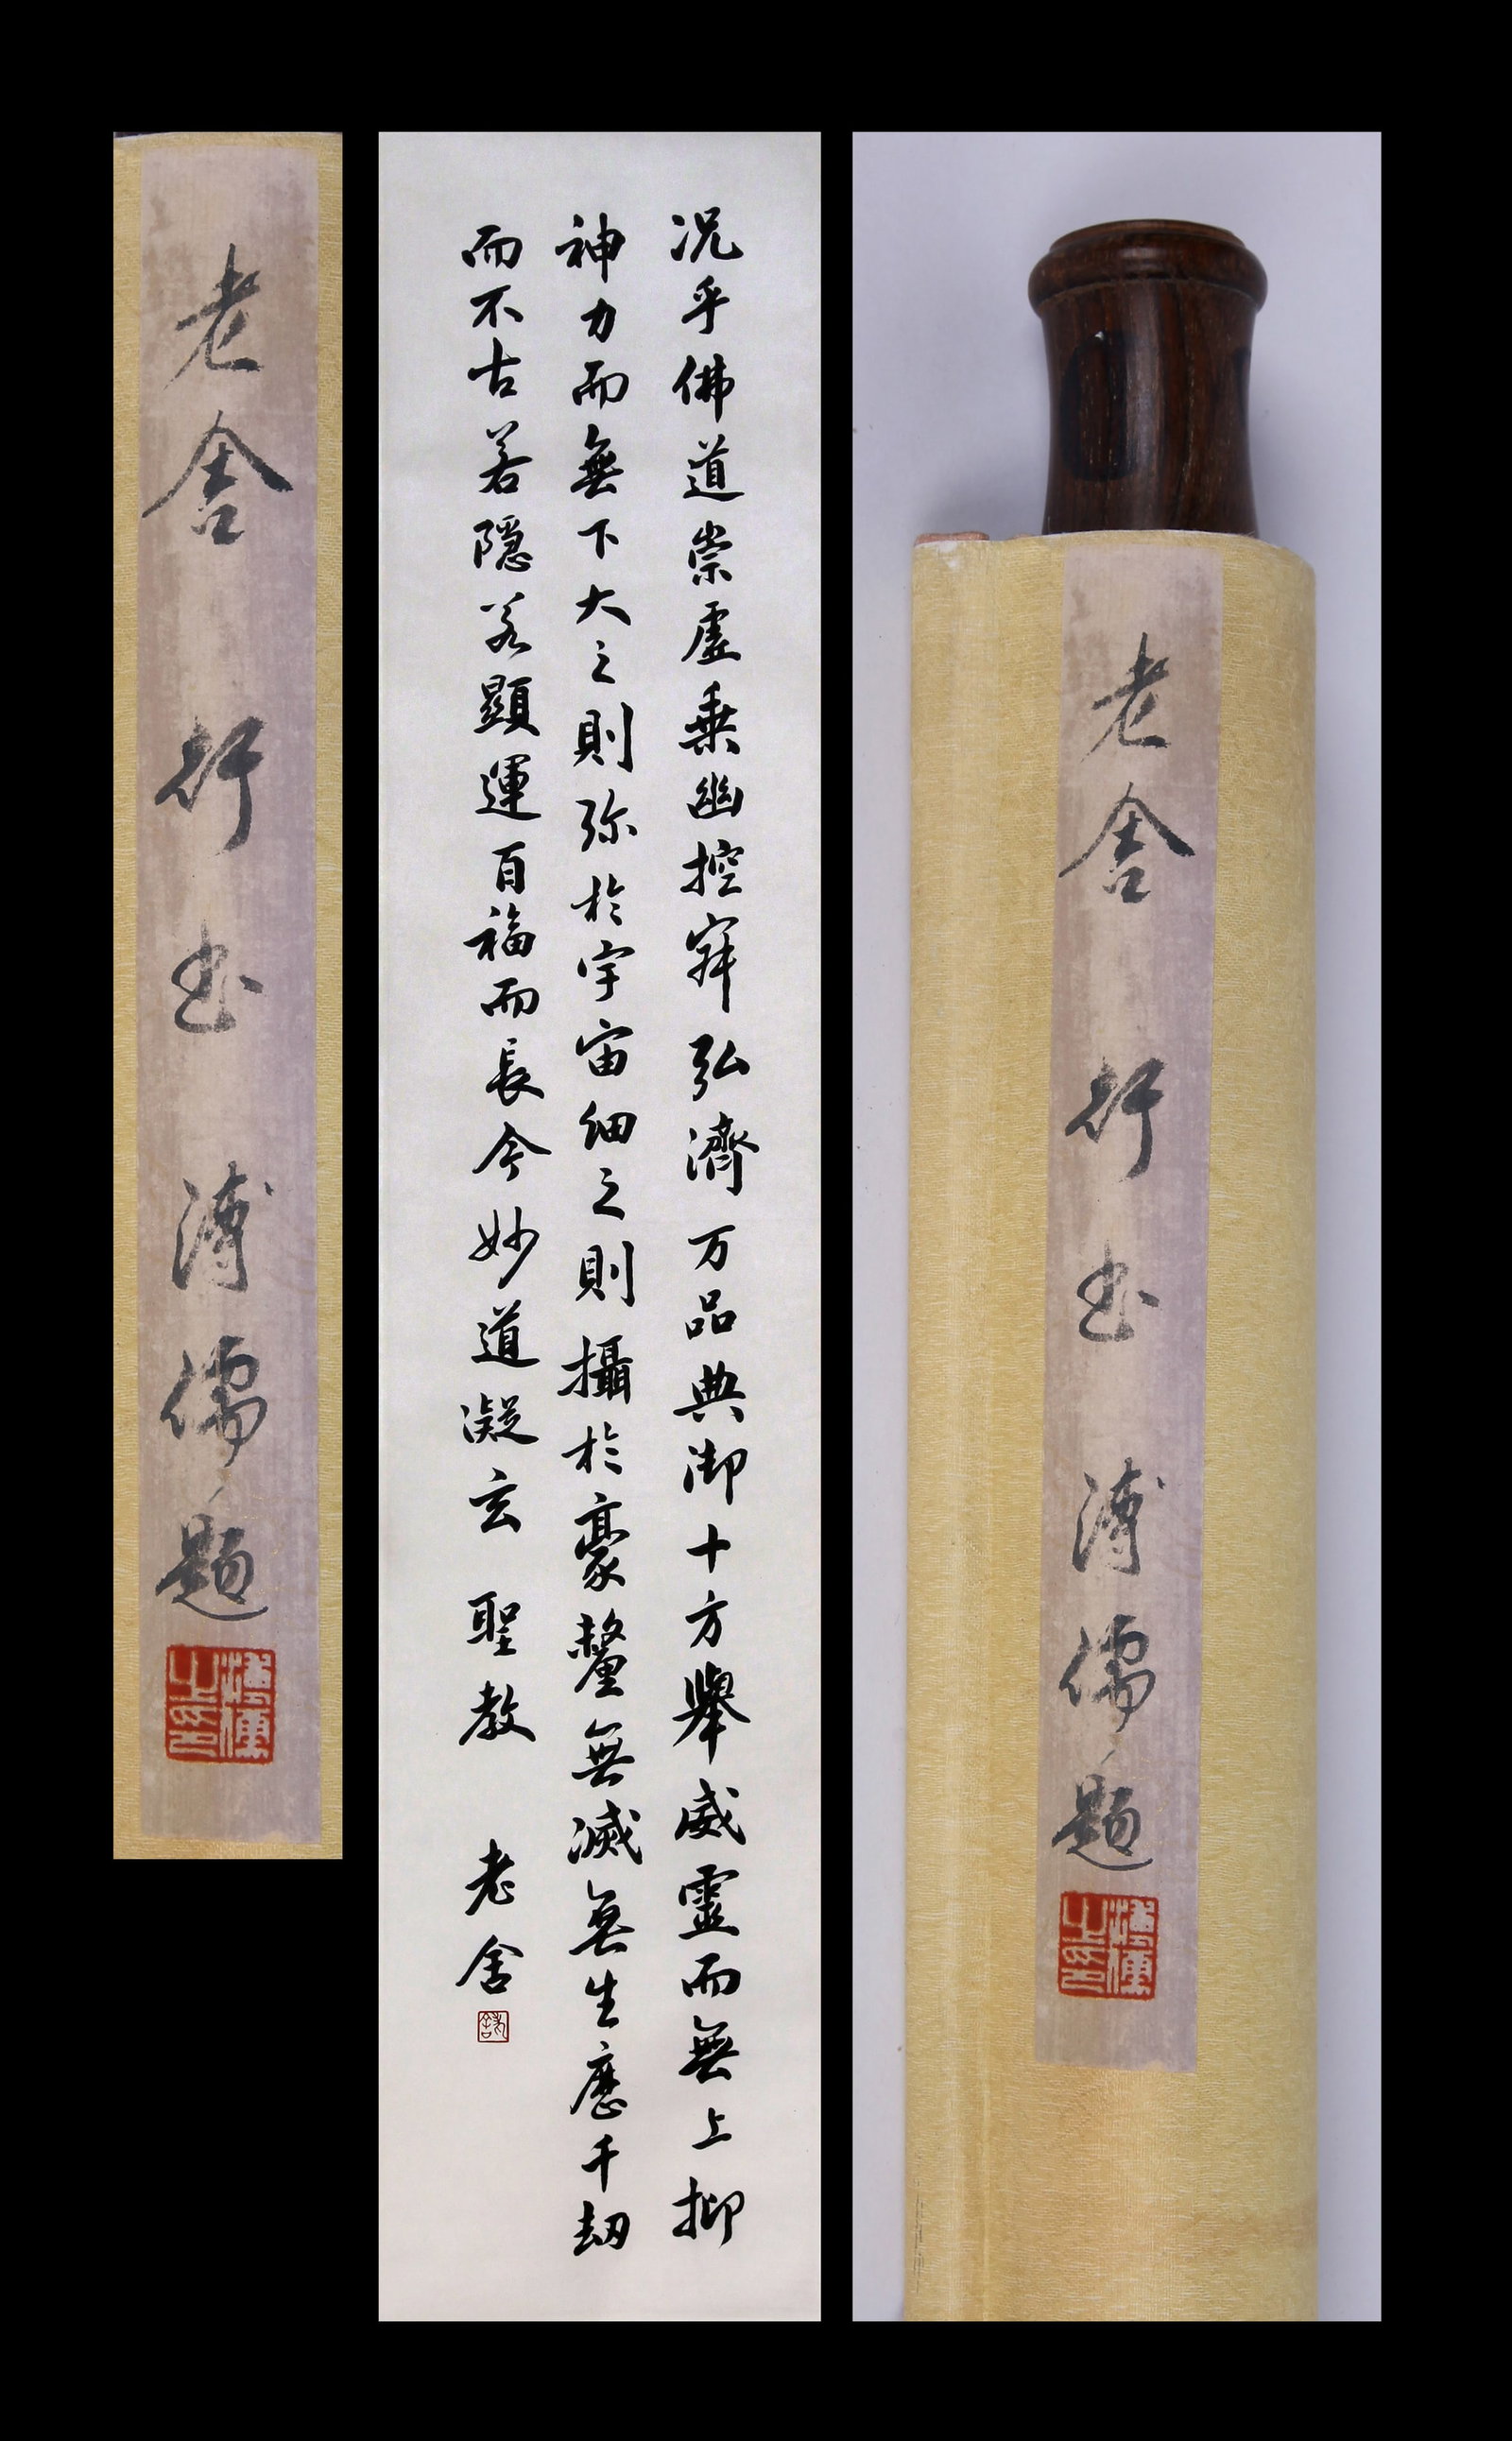 老舍 行书 溥儒題
溥儒之印
况乎佛道崇虛乘幽控寂弘濟万品典御十方舉威靈而無上抑
神力而無下大之則弥於宇宙細之則攝於豪釐無滅無生歷千劫
而不古若隱若顯運百福而長今妙道凝玄 聖教 老舍
老舍
老舍 行书 溥儒題
溥儒之印